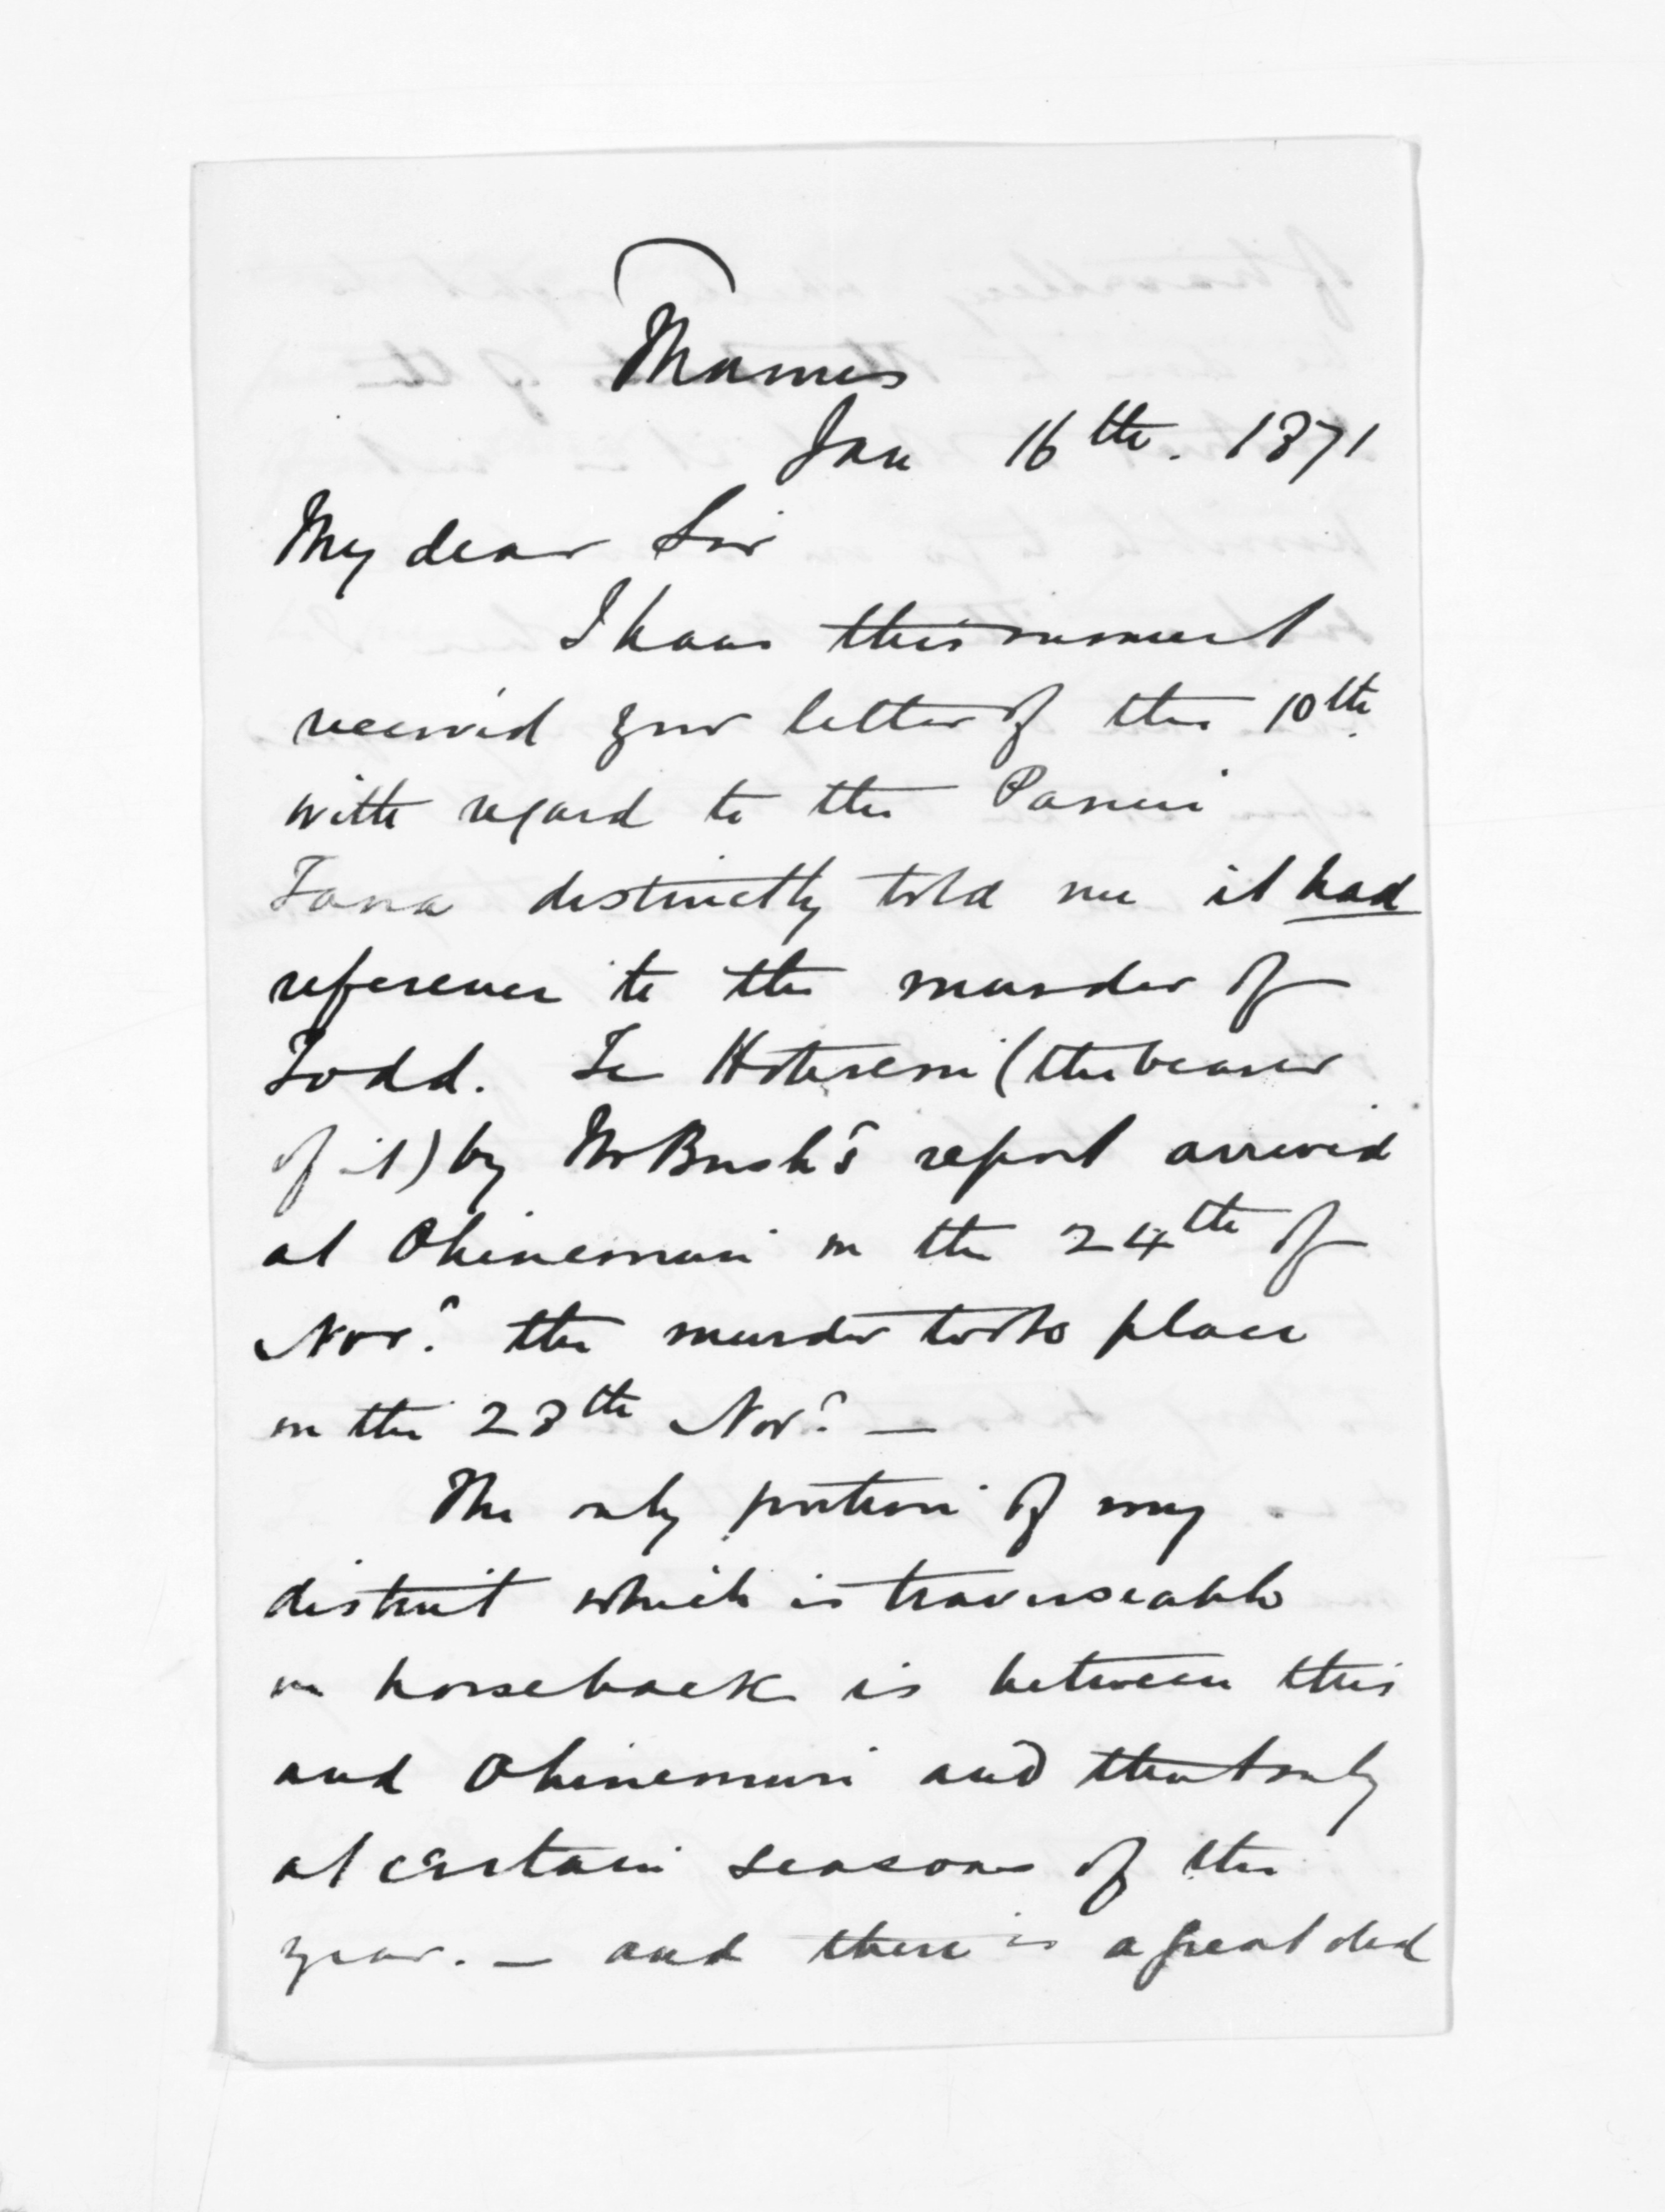 Thames
Jan 16th. 1871
My dear Sir
I have this moment
received your letter of the 10th.
with regard to the Panui
Tana distinctly told me it had
reference to the murder of
Todd. Te Hotereni (the bearer
of it) by Mr Bush's report arrived
at Ohinemuri on the 24th of
Novr. the murder took place
on the 28th Novr. —
The only portion of my
district which is traverseable
on horseback is between this
and Ohinemuri and that only
at certain seasons of the
year. — and there is a great deal